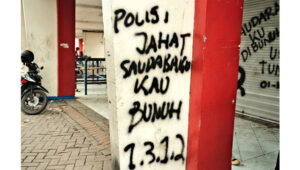 POLISI
JAHAT
SAUDARAKU
KAU
BUNUH
1.3.1.2
UDARA
KU
DIBUNUH